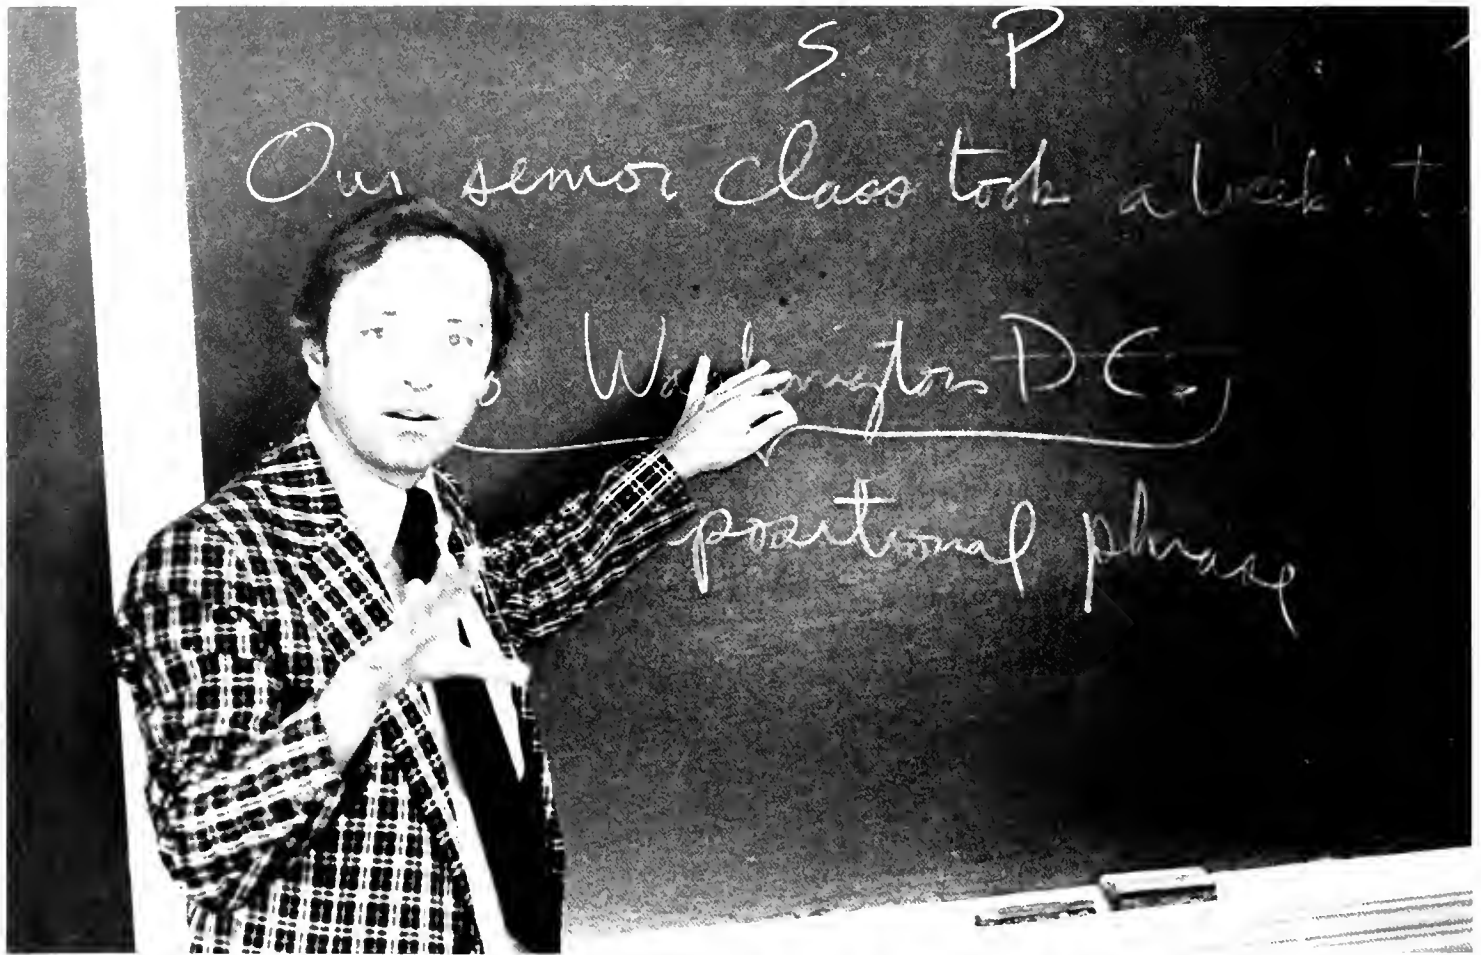 S. P
Our senior class took a week
Washington D.C.
positional phrase